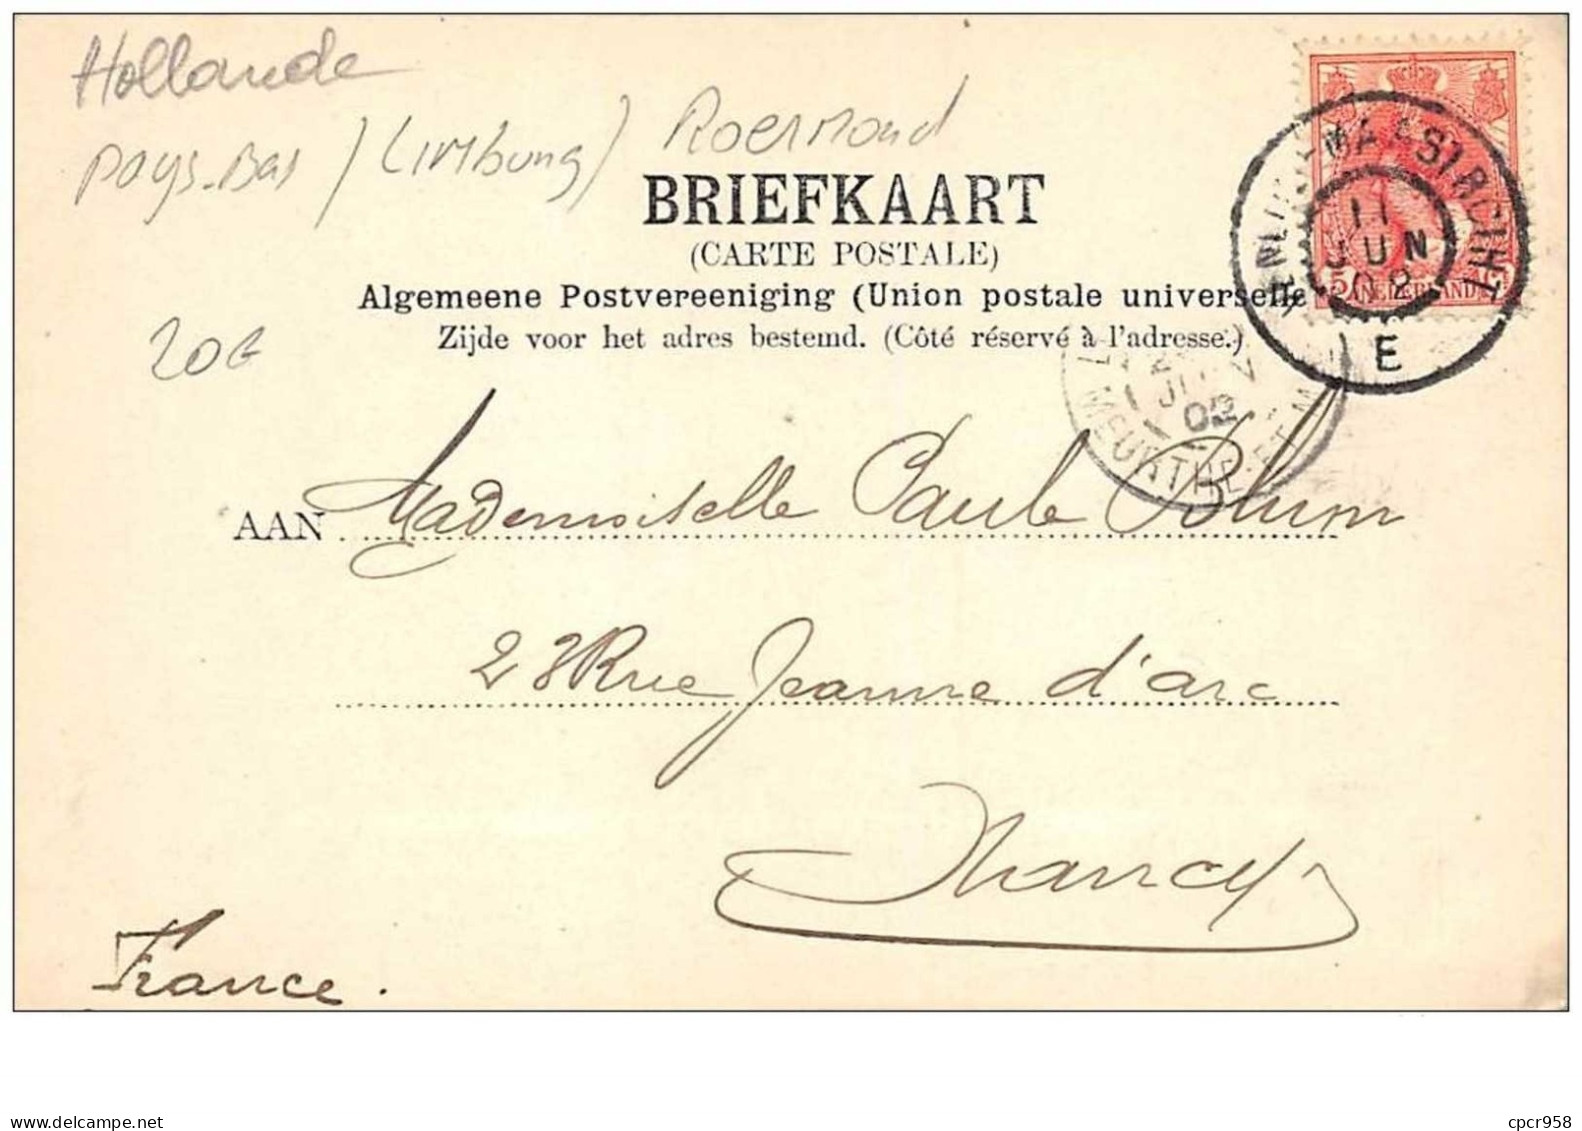 Hollande
Pays-Bas / Limburg / Roermond
BRIEFKAART
(CARTE POSTALE)
Algemeene Postvereeniging (Union postale universelle)
Zijde voor het adres bestemd. (Côté réservé à l'adresse.)
MAASTRICHT
11
JUN
02
E
5c NEDERLAND 5c
02
MEURTHE-ET-M
20€
AAN Mademoiselle Paule Blum
23 Rue Jeanne d'arc
Nancy
France.
cpcr958